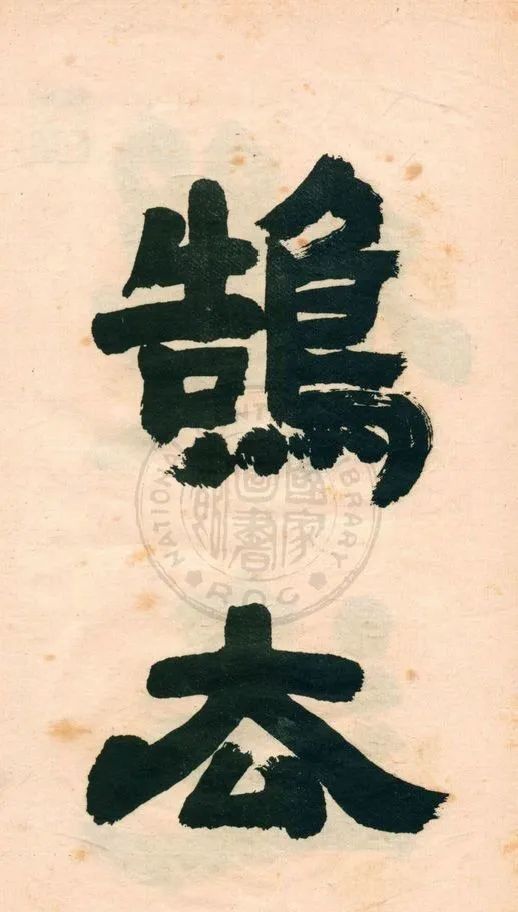 鵠
厺
NATIONAL CENTRAL LIBRARY
國家
圖書
館
R.O.C